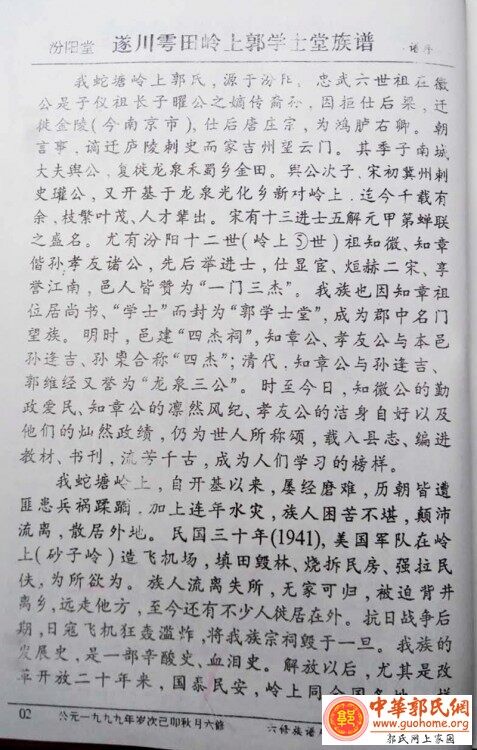 汾阳堂 遂川雩田岭上郭学士堂族谱 谱序
我蛇塘岭上郭氏，源于汾阳。忠武六世祖在徽
公是子仪祖长子曜公之嫡传裔孙，因拒仕后梁，迁
徙金陵(今南京市)，仕后唐庄宗，为鸿胪右卿。朝
言事，谪迁庐陵刺史而家古州望云门。其季子南城
大夫舆公，复徙龙泉禾蜀乡金田。舆公次子、宋初冀州刺
史瓘公，又开基于龙泉光化乡新对岭上，迄今千载有
余，枝繁叶茂、人才辈出。宋有十三进士五解元甲第蝉联
之盛名。尤有汾阳十二世(岭上⑤世)祖知微、知章
偕孙孝友诸公，先后举进士，仕显宦、烜赫二宋、享
誉江南，邑人皆赞为“一门三杰”。我族也因知章祖
位居尚书、“学士”而封为“郭学士堂”，成为郡中名门
望族。明时，邑建“四杰祠”，知章公、孝友公与本邑
孙逢吉、孙 合称“四杰”；清代，知章公与孙逢吉、
郭维经又誉为“龙泉三公”。时至今日，知微公的勤
政爱民、知章公的凛然风纪、孝友公的洁身自好以及
他们的灿然政绩，仍为世人所称颂，载入县志、编进
教材、书刊，流芳千古，成为人们学习的榜样。
我蛇塘岭上，自开基以来，屡经磨难，历朝皆遭
匪患兵祸蹂躏，加上连年水灾，族人困苦不堪，颠沛
流离，散居外地。民国三十年(1941)，美国军队在岭
上(砂子岭)造飞机场，填田毁林、烧拆民房、强拉民
伕，为所欲为。族人流离失所，无家可归，被迫背井
离乡，远走他方，至今还有不少人徙居在外。抗日战争后
期，日寇飞机狂轰滥炸，将我族宗祠毁于一旦。我族的
发展史，是一部辛酸史、血泪史。解放以后，尤其是改
革开放二十年来，国泰民安，岭上同全国各地一样
02 公元一九九九年岁次己卯秋月六修 六修族谱
中華郭氏網
www.guohome.org
郭氏网上家园